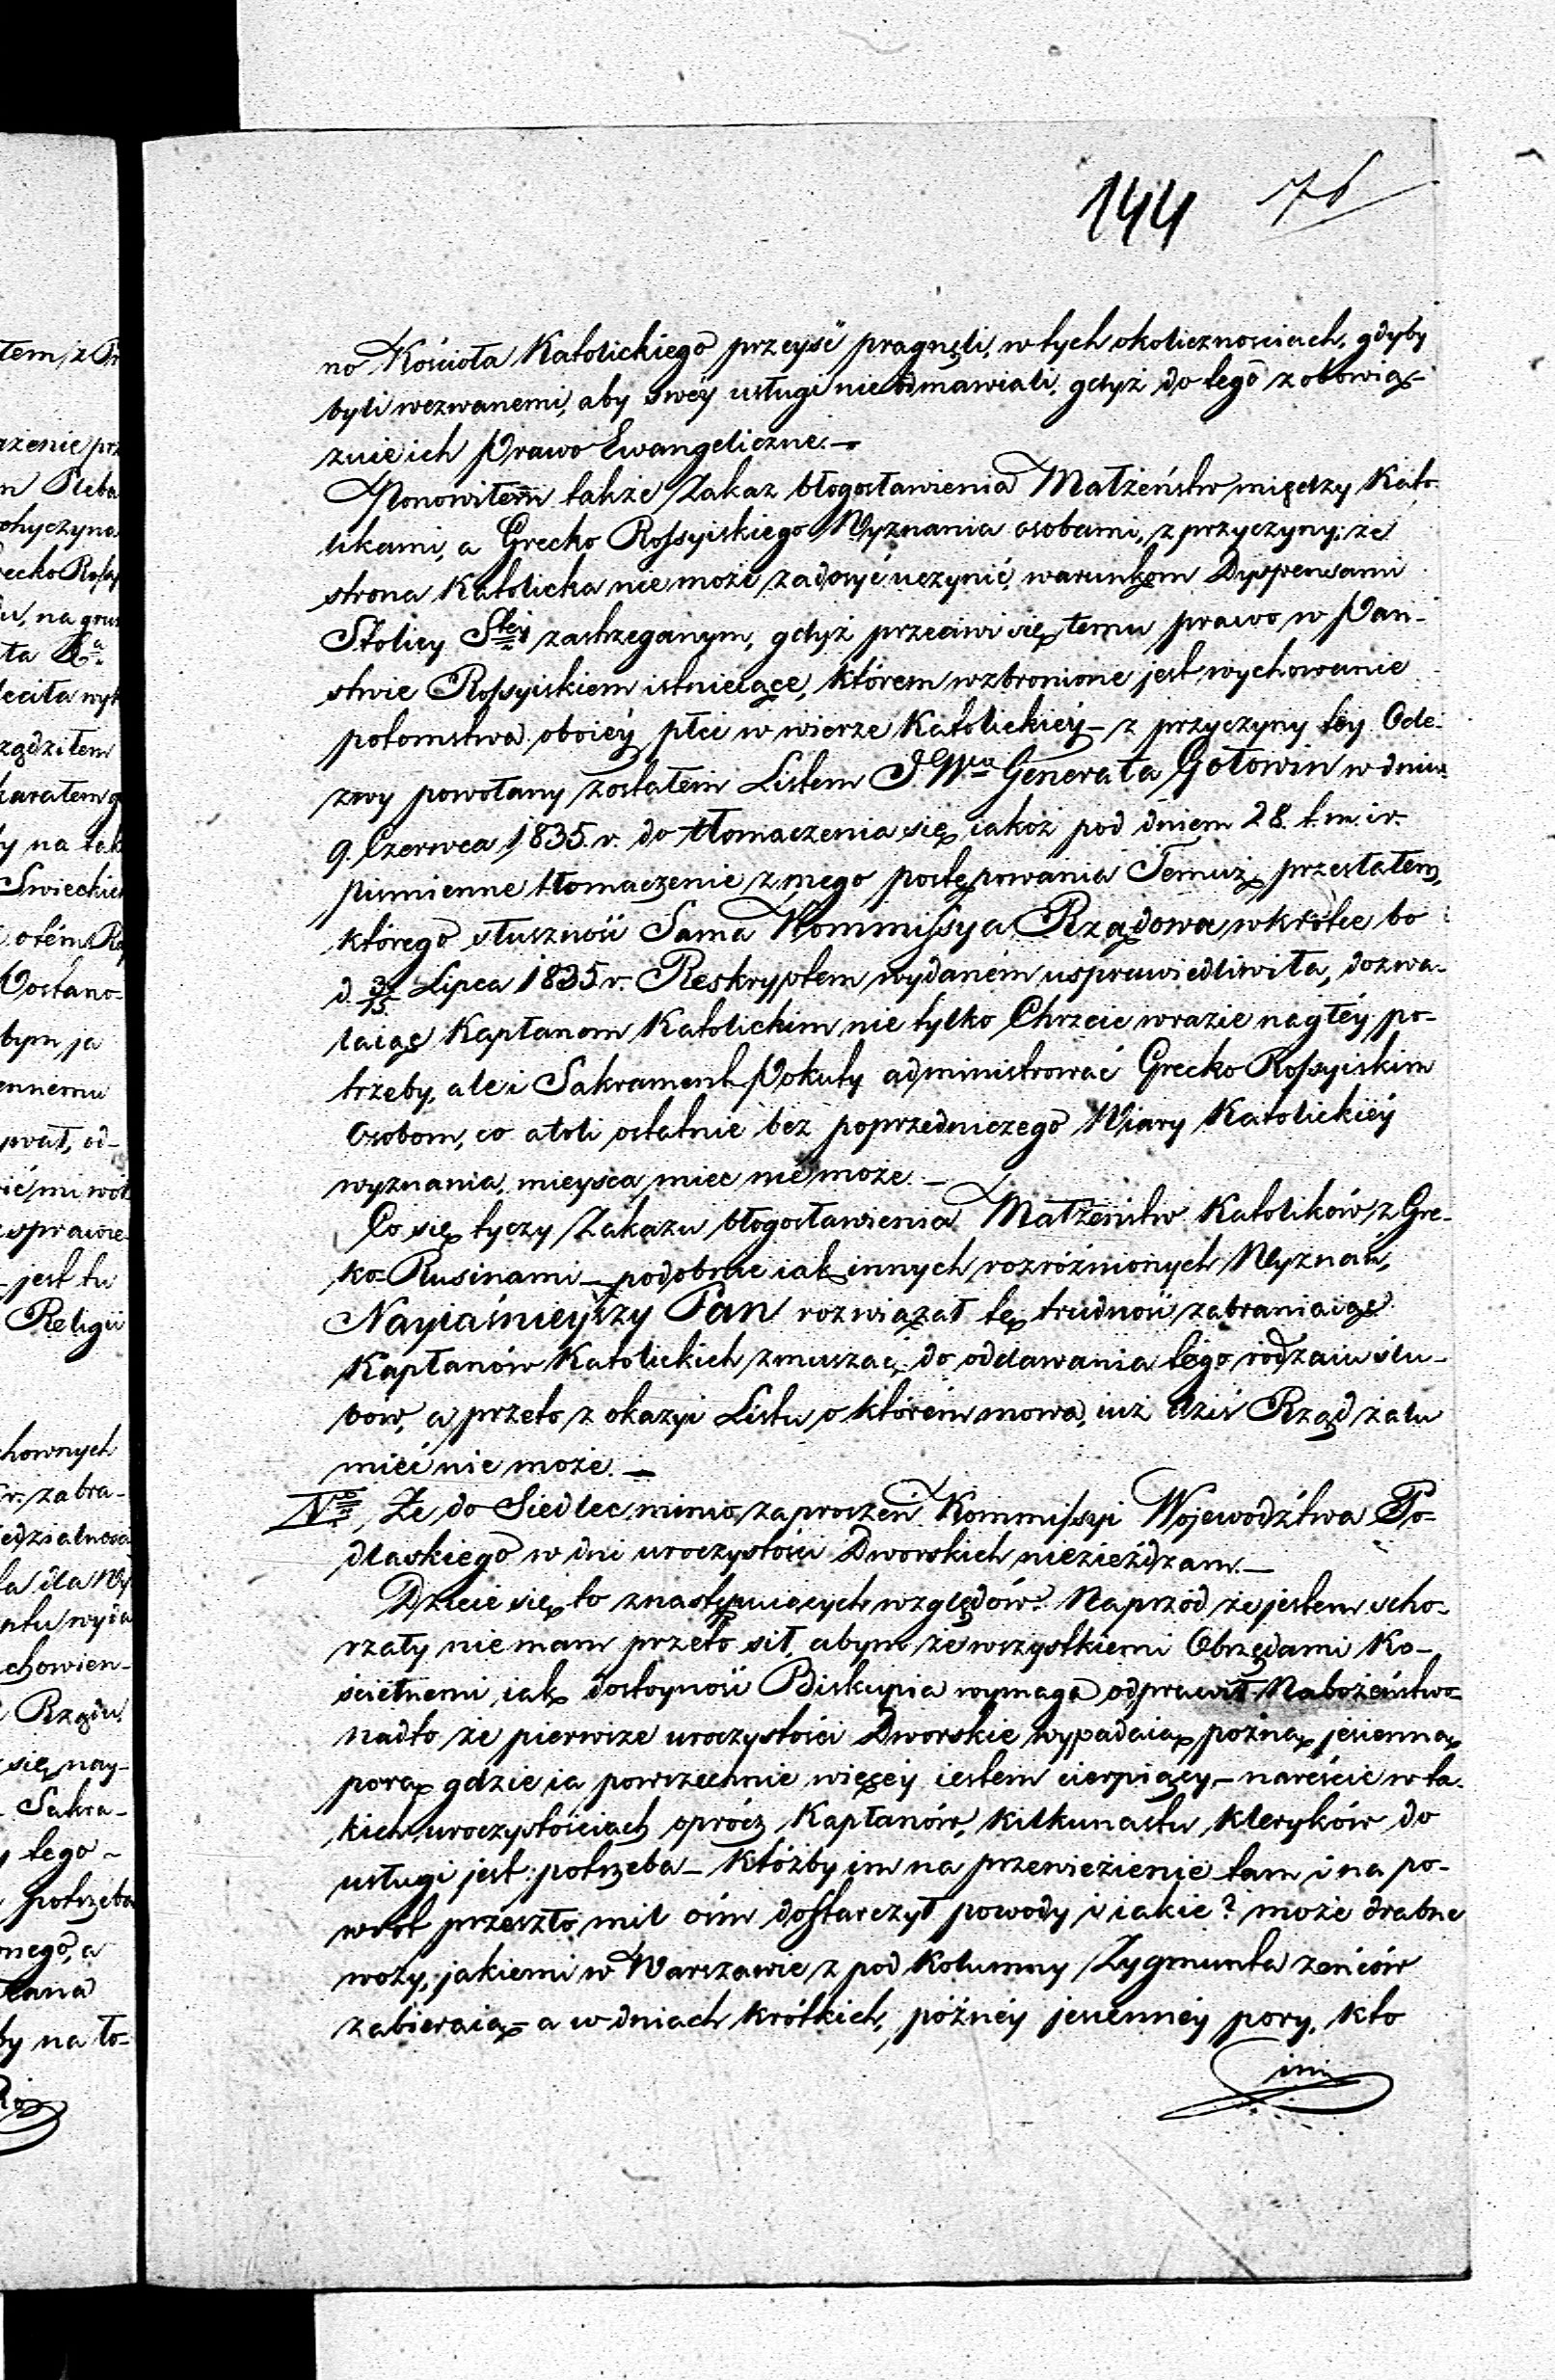 144 76
no Kościoła Katolickiego przeyść pragnęli, w tych okolicznościach, gdyby
byli wezwanemi, aby swéy usługi nie odmawiali, gdyż do tego zobowią-
zuie ich Prawo Ewangeliczne.—
Ponowiłem także Zakaz błogosławienia Małżeństw między Kato-
likami, a Grecko Rossyiskiego Wyznania osobami, z przyczyny: że
strona Katolicka nie może zadosyć uczynić, warunkom Dyspensami
Stolicy Stéy zastrzeganym, gdyż przeciwi się temu prawo w Pań-
stwie Rossyiskiem istnieiące, którem wzbronione jest wychowanie
potomstwa oboiéy płci w wierze Katolickiéy – z przyczyny téy Ode-
zwy powołany zostałem Listem JWgo Generała Gołowin w dniu
9. Czerwca 1835. r. do tłomaczenia się, iakoż pod dniem 28. t. m. i r.
piśmienne tłomaczenie z mego postępowania Temuż przesłałem,
którego słuszność Sama Kommissya Rządowa wkrótce bo
d. 3/15 Lipca 1835 r. Reskryptem wydaném usprawiedliwiła, dozwa-
laiąc Kapłanom Katolickim nie tylko Chrzcić w razie nagłéy po-
trzeby, ale i Sakrament Pokuty administrować Grecko Rossyiskim
Osobom, co atoli ostatnie bez poprzedniczego Wiary Katolickiéy
wyznania, mieysca mieć nie może.—
Co się tyczy Zakazu błogosławienia Małżeństw Katolików z Gre-
ko-Rusinami – podobnie iak innych rozróżnionych Wyznań,
Nayiaśnieyszy Pan rozwiązał tę trudność zabraniaiąc
Kapłanów Katolickich zmuszać, do oddawania tégo rodzaiu ślu-
bów, a przeto z okazyi Listu o którém mowa, iuż dziś Rząd żalu
mieć nie może.—
Że do Siedlec, mimo zaproszeń Kommissyi Województwa Po-
dlaskiego w dni uroczystości Dworskich niezieżdżam.—
Dzieie się to z następuiących względów. Naprzód że jestem scho-
rzały nie mam przeto sił, abym ze wszystkiemi Obrzędami Ko-
ścielnemi, iak dostoyność Biskupia wymaga odprawił Nabożeństwo
nadto że pierwsze uroczystości Dworskie wypadaią późną jesienną
porą gdzie ia powszechnie więcéy iestem cierpiący,– nareście w ta-
kich uroczystościach oprócz Kapłanów, kilkunastu Kleryków do
usługi jest potrzeba – Któżby im na przewiezienie tam i na po-
wrót przeszło mil ośm dostarczył powody i iakie? może drabne
wozy, jakiemi w Warszawie z pod Kolumny Zygmunta żeńców
zabieraią – a w dniach krótkich, późnéy jesiennéy pory, kto
im